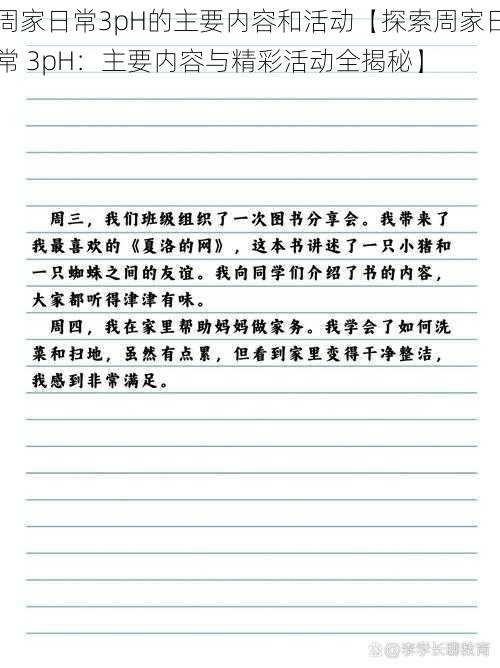 周家日常3pH的主要内容和活动【探索周家日
常 3pH：主要内容与精彩活动全揭秘】
周三，我们班级组织了一次图书分享会。我带来了
我最喜欢的《夏洛的网》，这本书讲述了一只小猪和
一只蜘蛛之间的友谊。我向同学们介绍了书的内容，
大家都听得津津有味。
周四，我在家里帮助妈妈做家务。我学会了如何洗
菜和扫地，虽然有点累，但看到家里变得干净整洁，
我感到非常满足。
@李学长聊教育